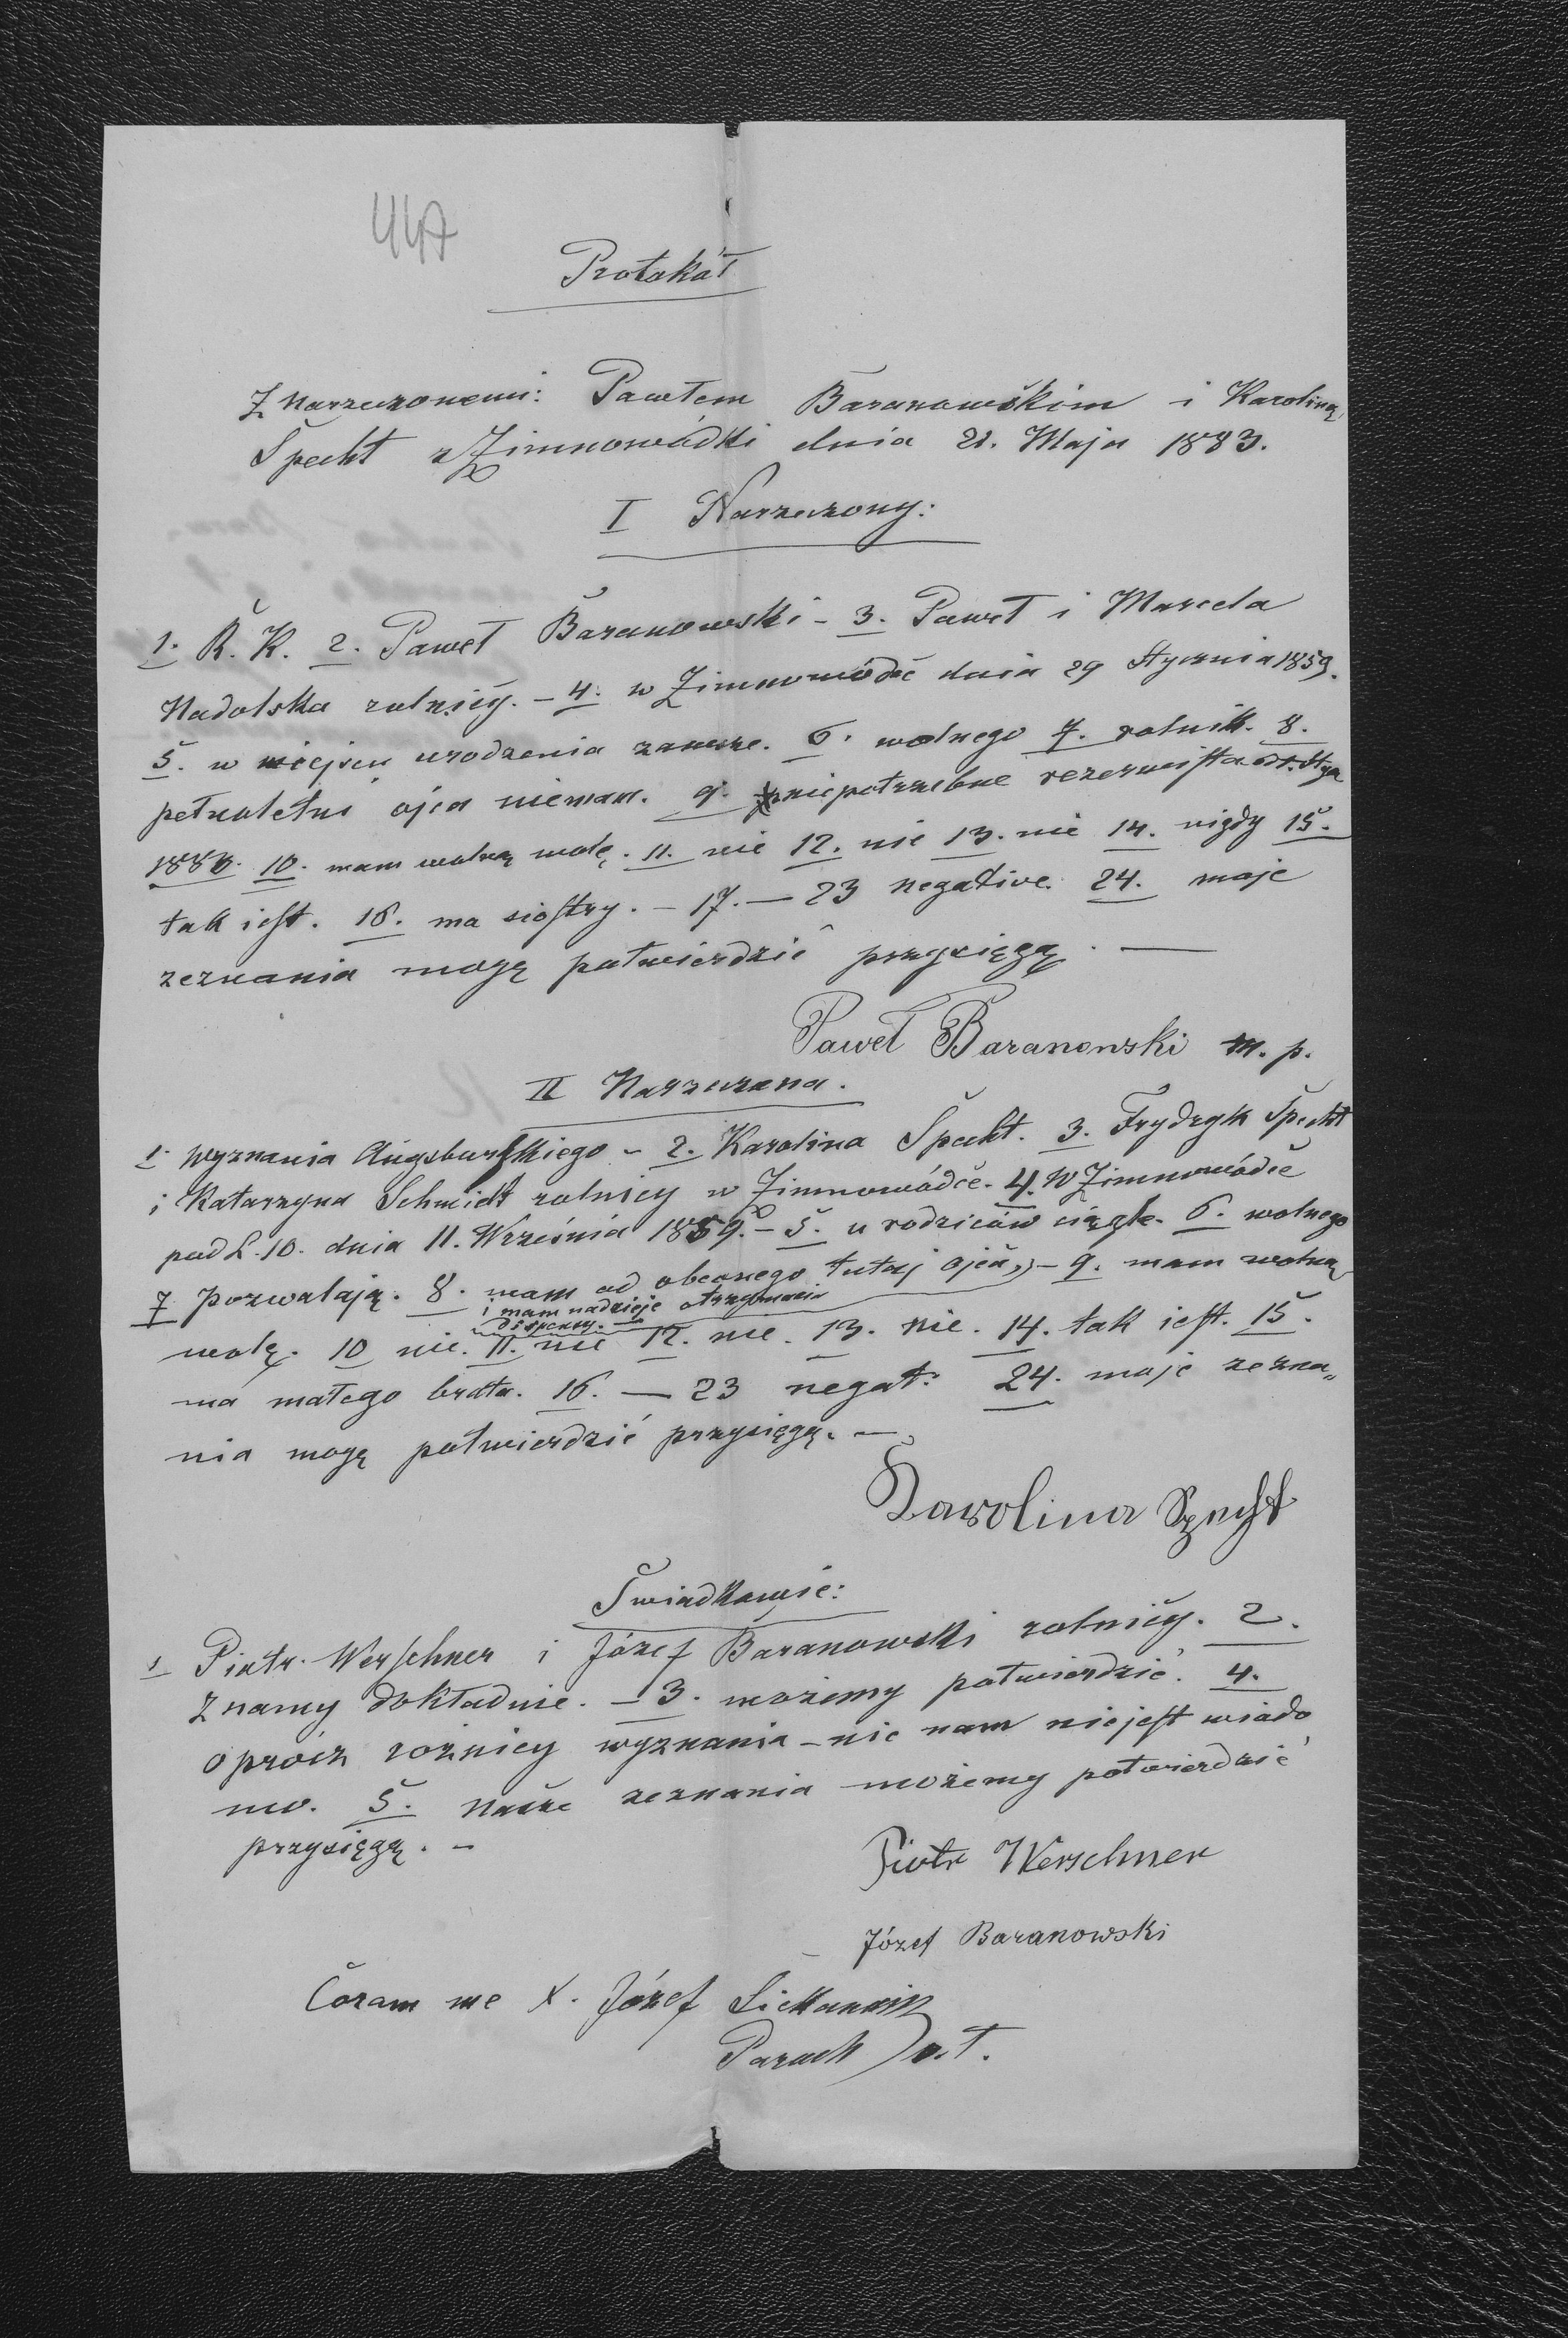 447
Protokół
Z narzeczonemi: Pawłem Baranowskim i Karoliną
Specht z Zimnowódki dnia 21. Maja 1883.
I Narzeczony:
1. R. K. 2. Paweł Baranowski - 3. Paweł i Marcela
Nadolska rolnicy. - 4. w Zimnowódce dnia 29 Stycznia 1859.
5. w miejscu urodzenia zawsze. 6. wolnego 7. rolnik. 8.
pełnoletni ojca niemam. 9. niepotrzebne rezerwista od 1. Stya
1883. 10. mam wolną wolę. 11. nie 12. nie 13. nie 14. nigdy 15.
tak jest. 16. ma siostry. - 17. — 23 negative. 24. moje
zeznania mogę potwierdzić przysięgą. —
Paweł Baranowski m. p.
II Narzeczona.
1. wyznania Augsburskiego - 2. Karolina Specht. 3. Frydryk Specht
i Katarzyna Schmidt rolnicy w Zimnowódce. 4. W Zimnowódce
pod L. 10. dnia 11. Września 1859. - 5. u rodziców ciągle. 6. wolnego
7 pozwalają. 8. mam od obecnego tutaj ojca, - 9. mam wolną
i mam nadzieje otrzymania
dispensy. —
wolę. 10 nie. 11. nie 12. nie. 13. nie. 14. tak jest. 15.
ma małego brata. 16. — 23 negat: 24. moje zezna„
nia mogę potwierdzić przysięgą. —
Karolina Specht
Świadkowie:
1 Piotr Werschner i Józef Baranowski rolnicy. 2.
znamy dokładnie. - 3. możemy potwierdzić. 4.
oprócz rożnicy wyznania - nic nam niejest wiado
mo. 5. Nasze zeznania możemy potwierdzić
przysięgą. -
Piotr Werschner
Józef Baranowski
Coram me X. Józef